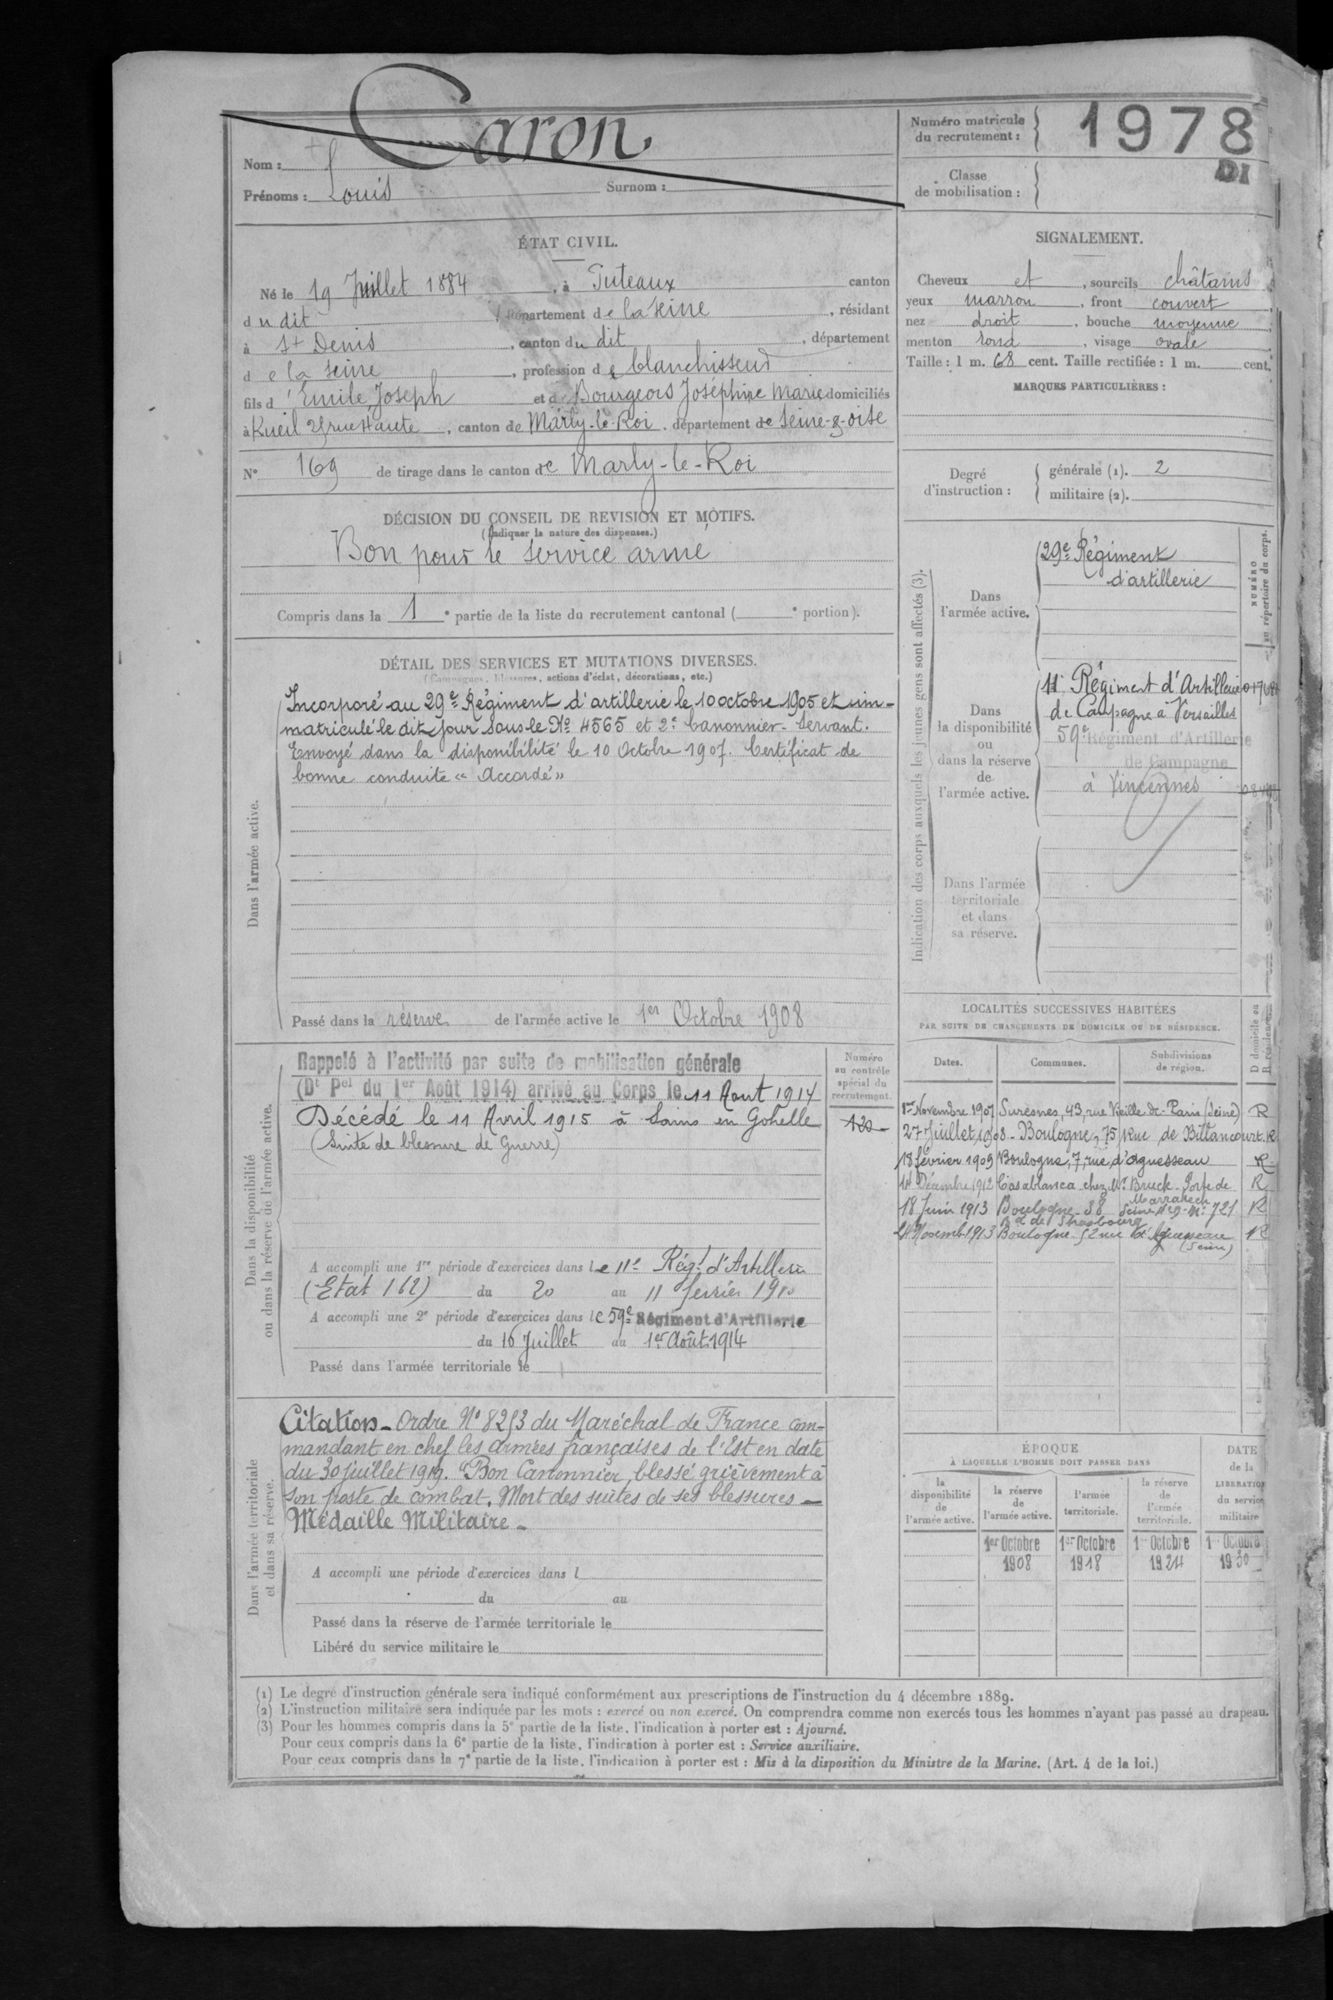 Caron
Nom :
Prénoms : Louis Surnom :
Numéro matricule
du recrutement :
1978
DI
Classe
de mobilisation :
ÉTAT CIVIL.
Né le 19 Juillet 1884, à Puteaux canton
du dit, département de la Seine, résidant
à St Denis, canton du dit, département
de la Seine, profession de blanchisseur
fils d'Emile Joseph et de Bourgeois Joséphine Marie domiciliés
à Rueil 29 rue Haute, canton de Marly-le-Roi, département de Seine-&-Oise
N° 169 de tirage dans le canton de Marly-le-Roi
SIGNALEMENT.
Cheveux et, sourcils châtains
yeux marron, front couvert
nez droit, bouche moyenne
menton rond, visage ovale
Taille : 1 m. 68 cent. Taille rectifiée : 1 m. cent.
MARQUES PARTICULIÈRES :
Degré
d'instruction :
générale (1). 2
militaire (2).
DÉCISION DU CONSEIL DE REVISION ET MOTIFS.
(Indiquer la nature des dispenses.)
Bon pour le service armé
Compris dans la 1e partie de la liste du recrutement cantonal ( e portion).
DÉTAIL DES SERVICES ET MUTATIONS DIVERSES.
(Campagnes, blessures, actions d'éclat, décorations, etc.)
Dans l'armée active.
Incorporé au 29e Régiment d'artillerie le 10 octobre 1905 et im-
matriculé le dit jour sous le No 4565 et 2e Canonnier-Servant.
Envoyé dans la disponibilité le 10 Octobre 1907. Certificat de
bonne conduite « Accordé »
Passé dans la réserve de l'armée active le 1er Octobre 1908
Indication des corps auxquels les jeunes gens sont affectés (3).
NUMÉRO
au répertoire du corps.
Dans
l'armée active.
29e Régiment
d'artillerie
Dans
la disponibilité
ou
dans la réserve
de
l'armée active.
11e Régiment d'Artillerie
de Campagne à Versailles
59e Régiment d'Artillerie
de Campagne
à Vincennes
Dans l'armée
territoriale
et dans
sa réserve.
Dans la disponibilité
ou dans la réserve de l'armée active.
Rappelé à l'activité par suite de mobilisation générale
(Dt Pel du 1er Août 1914) arrivé au Corps le 11 Août 1914
Décédé le 11 Avril 1915 à Sains en Gohelle
(Suite de blessure de Guerre)
Numéro
au contrôle
spécial du
recrutement.
A accompli une 1re période d'exercices dans le 11e Régt d'Artillerie
(Etat 162) du 20 au 11 février 1910
A accompli une 2e période d'exercices dans le 59e Régiment d'Artillerie
du 16 Juillet au 1er Août 1914
Passé dans l'armée territoriale le
LOCALITÉS SUCCESSIVES HABITÉES
PAR SUITE DE CHANGEMENTS DE DOMICILE OU DE RÉSIDENCE.
Dates. Communes. Subdivisions
de région.
D domicile ou
R résidence.
1er Novembre 1907 Suresnes, 43, rue Vieille de Paris (Seine) R
27 Juillet 1908 - Boulogne, 75 Rue de Billancourt. R
18 février 1909 Boulogne, 7, rue d'Aguesseau R
Décembre 1912 Casablanca chez Mr Bruck - Porte de R
Marrakech
18 Juin 1913 Boulogne 88 Seine 721 R
Bd de Strasbourg
Novemb. 1913 Boulogne 52 rue d'Aguesseau R
(Seine)
Dans l'armée territoriale
et dans sa réserve.
Citation - Ordre N° 8253 du Maréchal de France com-
mandant en chef les armées françaises de l'Est en date
du 30 juillet 1919. "Bon Canonnier, blessé grièvement à
son poste de combat. Mort des suites de ses blessures -
Médaille Militaire -
A accompli une période d'exercices dans l
du au
Passé dans la réserve de l'armée territoriale le
Libéré du service militaire le
ÉPOQUE
À LAQUELLE L'HOMME DOIT PASSER DANS
DATE
de la
LIBÉRATION
du service
militaire
la
disponibilité
de
l'armée active.
la réserve
de
l'armée active.
l'armée
territoriale.
la réserve
de
l'armée
territoriale.
1er Octobre 1er Octobre 1er Octobre 1er Octobre
1908 1918 1924 1930
(1) Le degré d'instruction générale sera indiqué conformément aux prescriptions de l'instruction du 4 décembre 1889.
(2) L'instruction militaire sera indiquée par les mots : exercé ou non exercé. On comprendra comme non exercés tous les hommes n'ayant pas passé au drapeau.
(3) Pour les hommes compris dans la 5e partie de la liste, l'indication à porter est : Ajourné.
Pour ceux compris dans la 6e partie de la liste, l'indication à porter est : Service auxiliaire.
Pour ceux compris dans la 7e partie de la liste, l'indication à porter est : Mis à la disposition du Ministre de la Marine. (Art. 4 de la loi.)